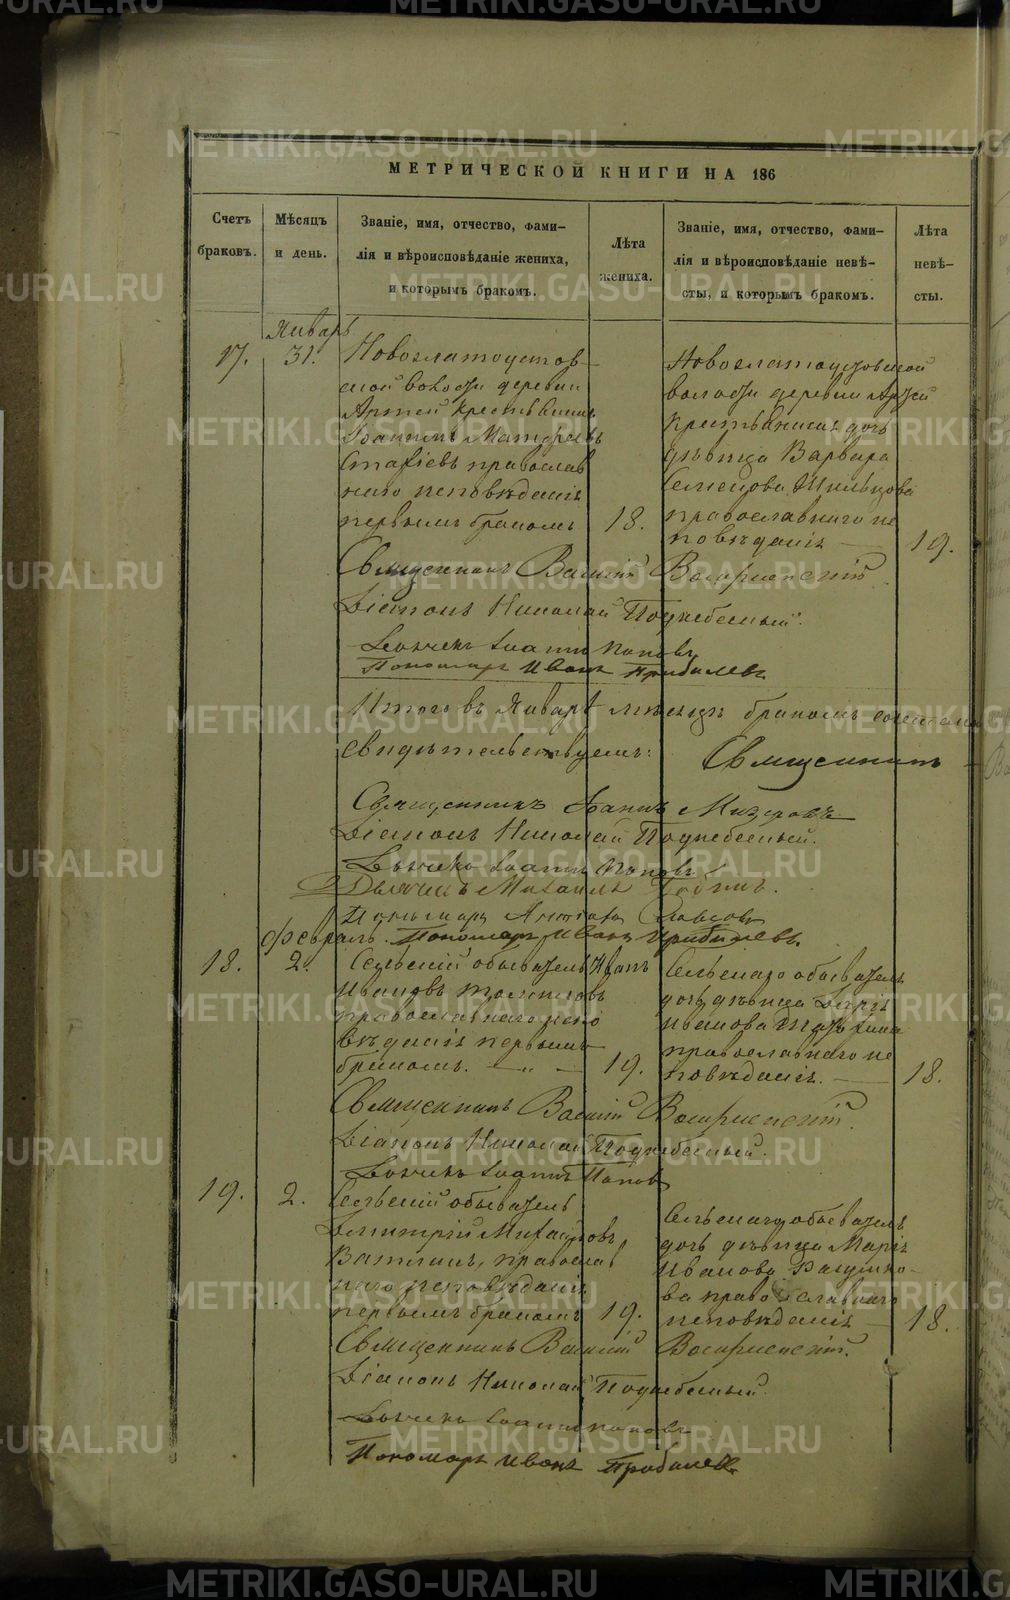 МЕТРИЧЕСКОЙ КНИГИ НА 186
Счетъ браковъ.
Мѣсяцъ и день.
Званіе, имя, отчество, фами-
лія и вѣроисповѣданіе жениха,
и которымъ бракомъ.
Лѣта жениха.
Званіе, имя, отчество, фами-
лія и вѣроисповѣданіе невѣ-
сты, и которымъ бракомъ.
Лѣта невѣ-
сты.
Январь
17.
31.
Новозлатоустов-
ской волости деревни
Артей крестьянинъ
Іоаннъ Матѳеевъ
православ
наго исповѣданія
первымъ бракомъ
18.
Новозлатоустовской
волости деревни Артей
крестьянина дочь
дѣвица Варвара
Семенова
православнаго ис
повѣданія
19.
Священникъ Василій Воскресенскій
Діаконъ Николай Поднебесный.
Дьячекъ Іоаннъ Поповъ
Пономарь Иванъ Прибылевъ
Итого въ Январѣ мѣсяцѣ бракомъ
свидѣтельствуемъ:
Священникъ
Священникъ Іоаннъ Мизеровъ
Діаконъ Николай Поднебесный.
Дьячекъ Іоаннъ Поповъ
Дьячекъ Михаилъ
Пономарь
Пономарь Иванъ Прибылевъ.
февраль.
18.
2.
Сельскій обыватель Иванъ
Ивановъ
православнаго испо
вѣданія первымъ
бракомъ.
19.
Сельскаго обывателя
дочь дѣвица Дарія
Иванова
православнаго ис
повѣданія.
18.
Священникъ Василій Воскресенскій.
Діаконъ Николай Поднебесный.
Дьячекъ Іоаннъ Поповъ
19.
2.
Сельскій обыватель
Димитрій Михайловъ
православ
наго исповѣданія
первымъ бракомъ
19.
Сельскаго обывателя
дочь дѣвица Марія
Иванова
православнаго
исповѣданія
18.
Священникъ Василій Воскресенскій.
Діаконъ Николай Поднебесный
Дьячекъ Іоаннъ Поповъ
Пономарь Иванъ Прибылевъ.
METRIKI.GASO-URAL.RU